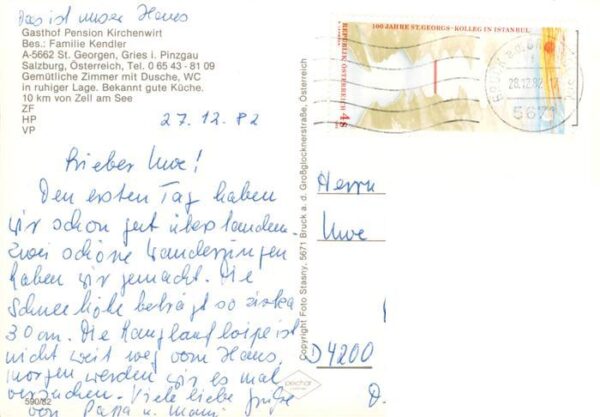 Das ist unser Haus
Gasthof Pension Kirchenwirt
Bes.: Familie Kendler
A-5662 St. Georgen, Gries i. Pinzgau
Salzburg, Österreich, Tel. 0 65 43 - 81 09
Gemütliche Zimmer mit Dusche, WC
in ruhiger Lage. Bekannt gute Küche.
10 km von Zell am See
ZF
HP
VP
27.12.82
Lieber Uwe!
Den ersten Tag haben
wir schon gut überstanden.
Zwei schöne Wanderungen
haben wir gemacht. Die
Schneehöhe beträgt so zirka
30 cm. Die Langlaufloipe ist
nicht weit weg vom Haus,
morgen werden wir es mal
versuchen. Viele liebe Grüße
von Papa u. Mami
590/82
Copyright Foto Stasny, 5671 Bruck a. d. Großglocknerstraße, Österreich
100 JAHRE ST. GEORGS-KOLLEG IN ISTANBUL
REPUBLIK ÖSTERREICH 4S
28.12.82
5671
Herrn
Uwe
D 4200
D.